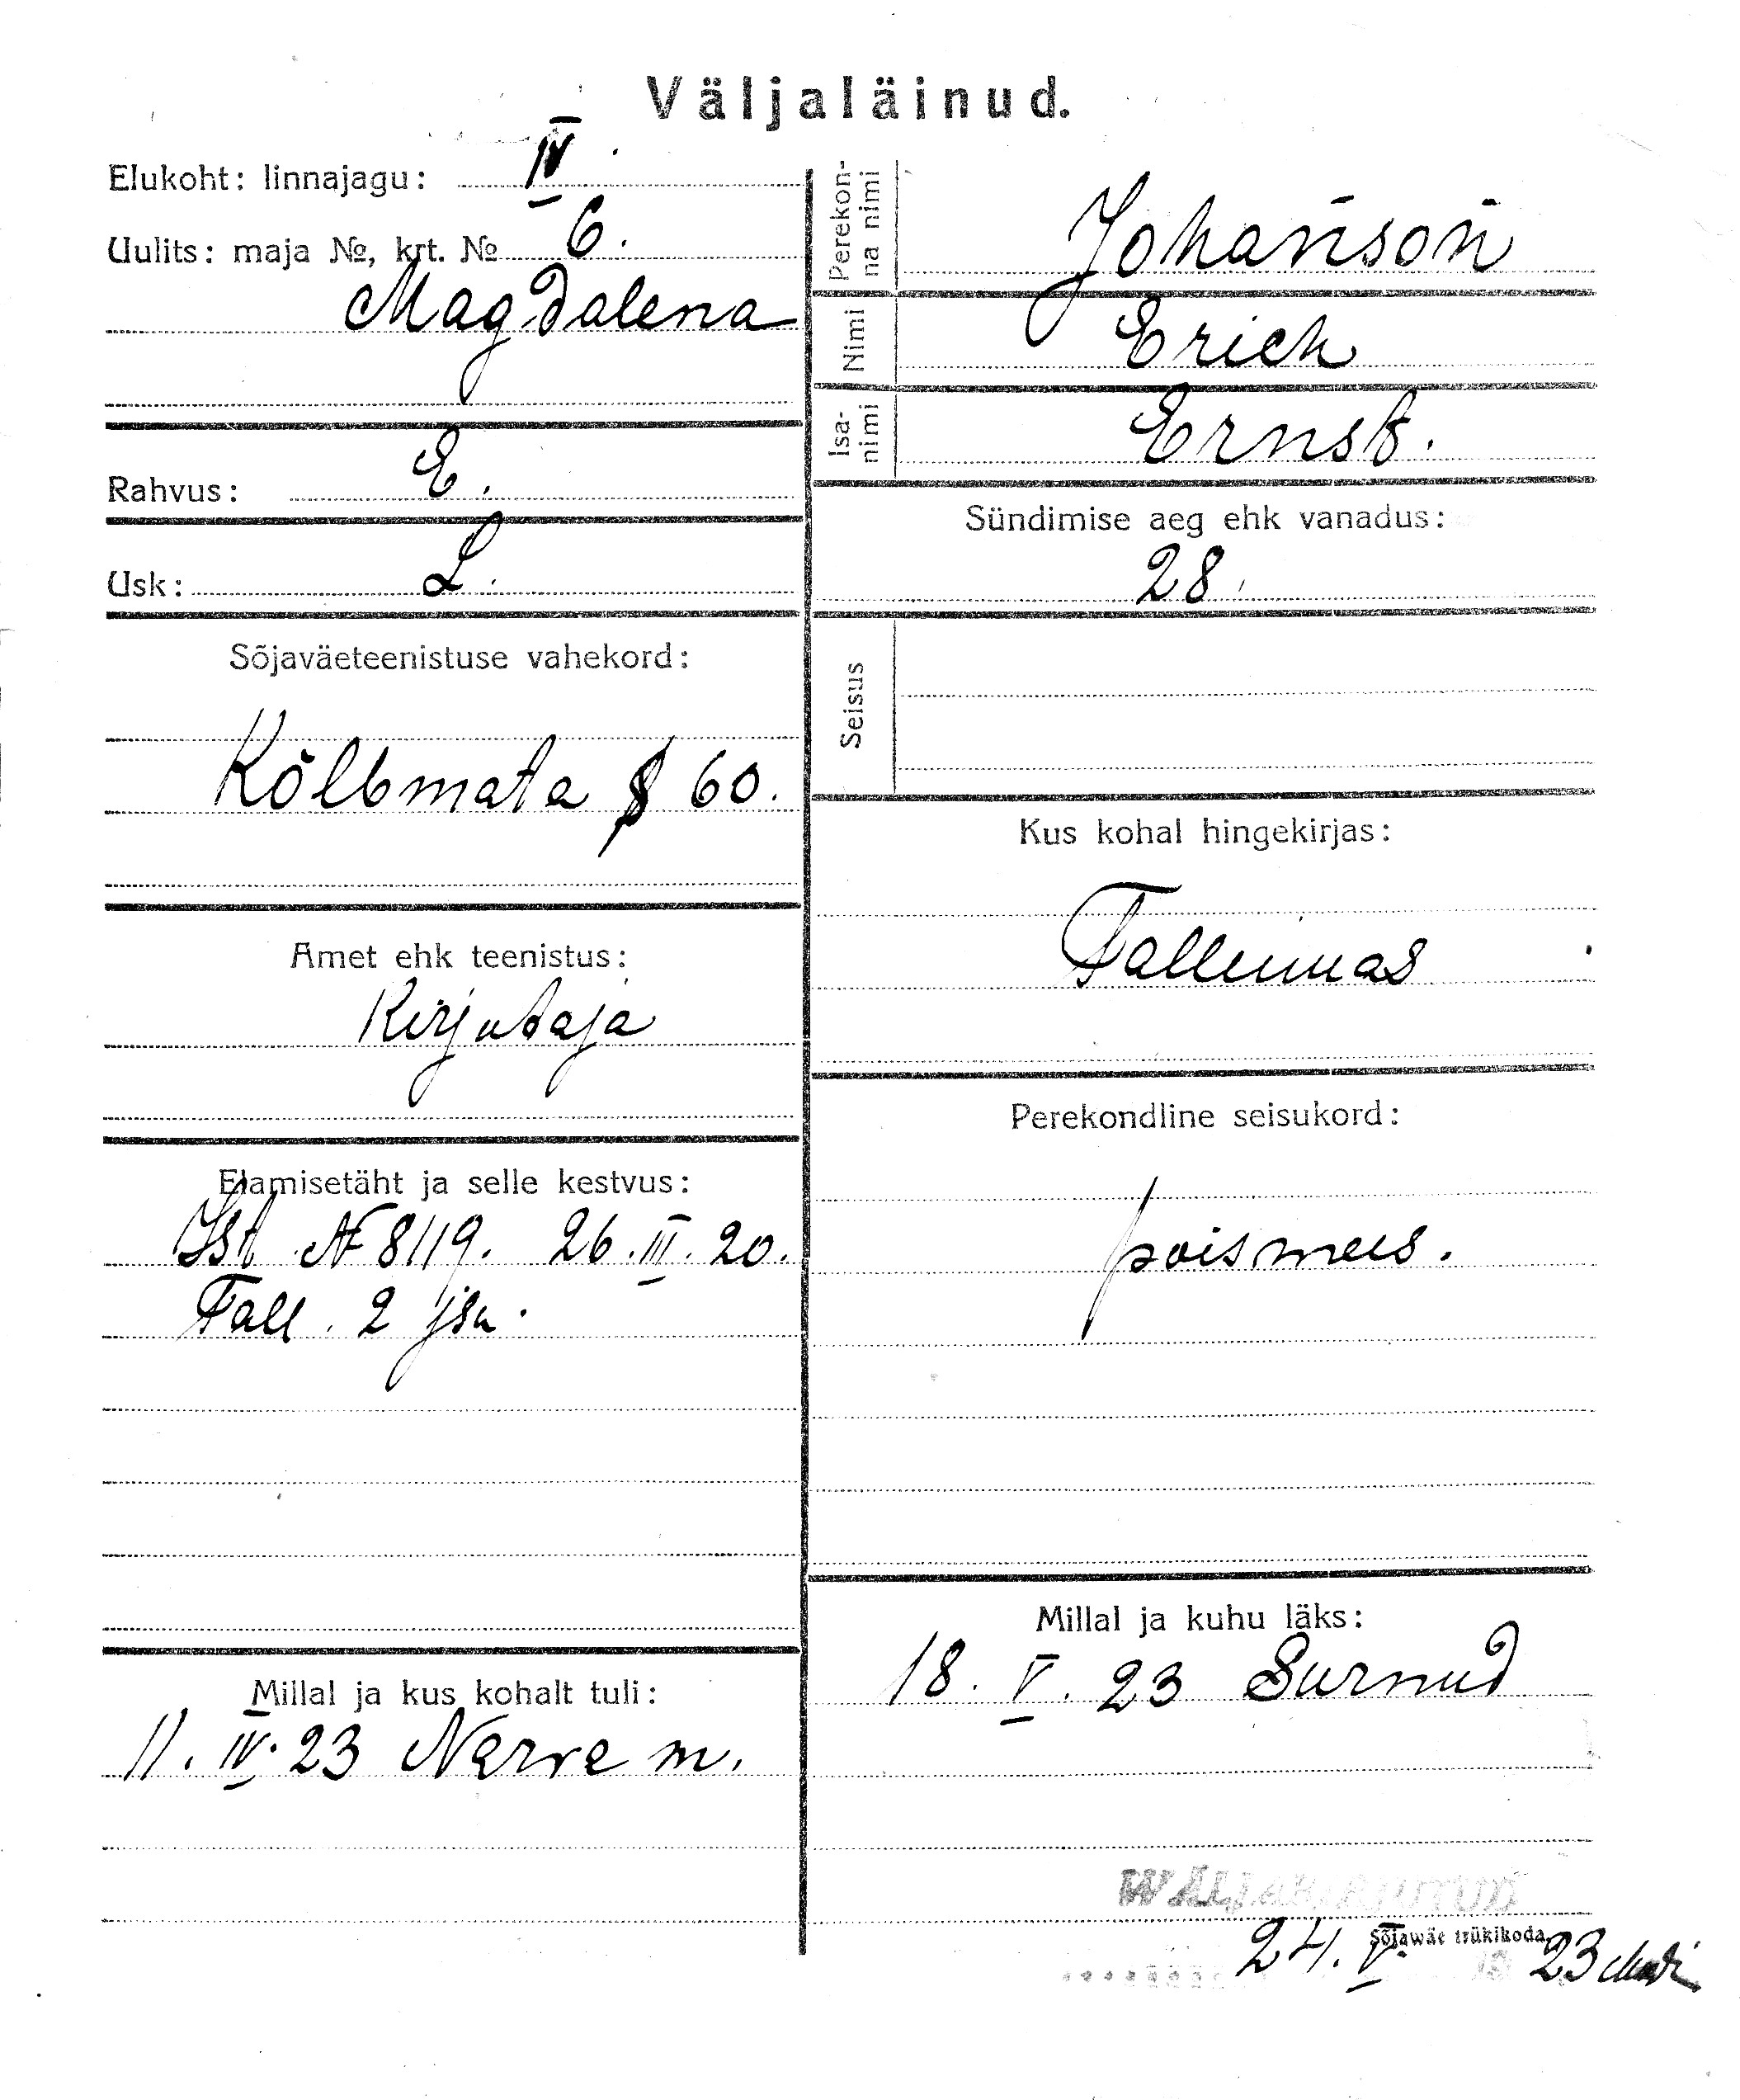 Väljaläinud.
Elukoht: linnajagu: IV
Uulits: maja №, krt. № 6.
Magdalena
Rahvus: E.
Usk: L.
Sõjaväeteenistuse vahekord:
Kõlbmata § 60.
Amet ehk teenistus:
Kirjutaja
Elamisetäht ja selle kestvus:
Ist № 8119. 26.III.20.
Tall. 2 jsk.
Millal ja kus kohalt tuli:
11. IV. 23 Narva m.
Perekon-
na nimi
Johanson
Nimi Erich
Isa-
nimi
Ernst.
Sündimise aeg ehk vanadus:
28.
Seisus
Kus kohal hingekirjas:
Tallinnas
Perekondline seisukord:
poismees.
Millal ja kuhu läks:
18. V. 23 Surnud
Sõjawäe trükikoda
24. V. 23